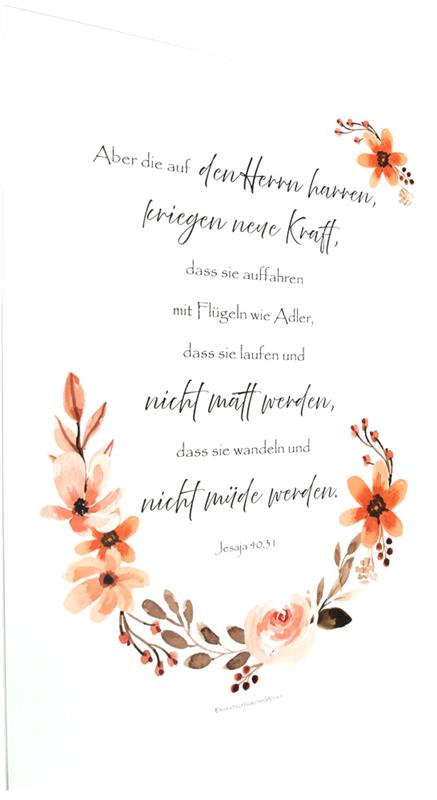 Aber die auf den Herrn harren,
kriegen neue Kraft,
dass sie auffahren
mit Flügeln wie Adler,
dass sie laufen und
nicht matt werden,
dass sie wandeln und
nicht müde werden.
Jesaja 40,31